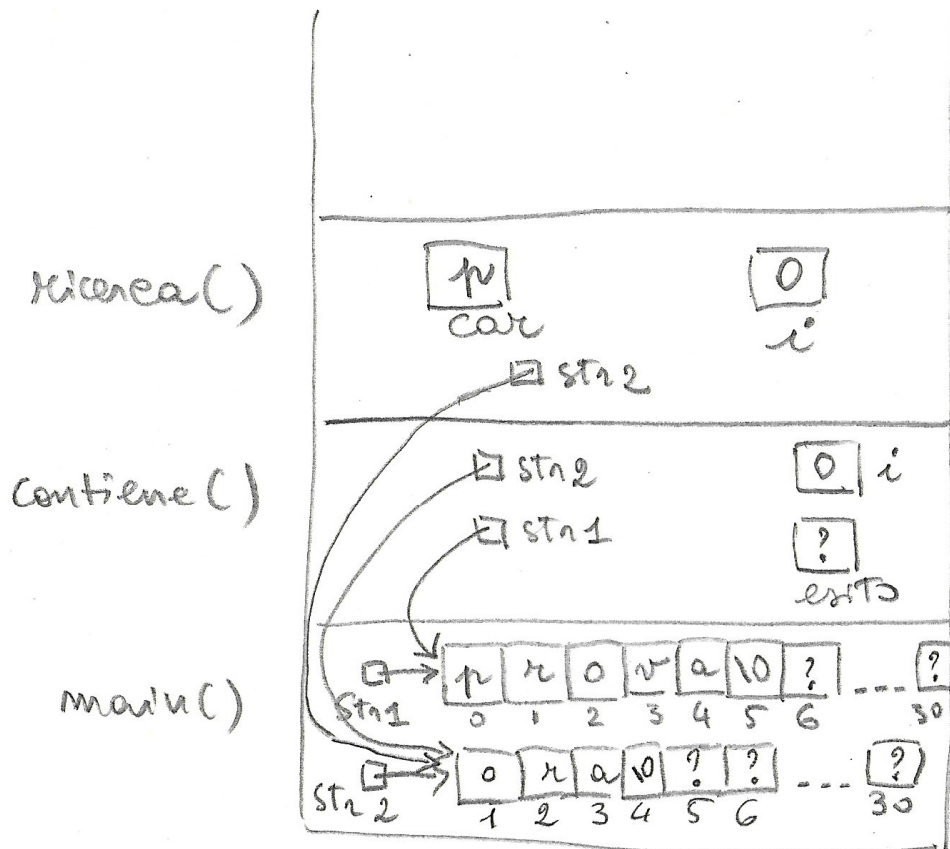 ricerca() p 0
car i
str2
contiene() str2 0 i
str1 ?
esito
main() str1 p r o v a \0 ? ... ?
0 1 2 3 4 5 6 30
str2 o r a \0 ? ? ... ?
1 2 3 4 5 6 30